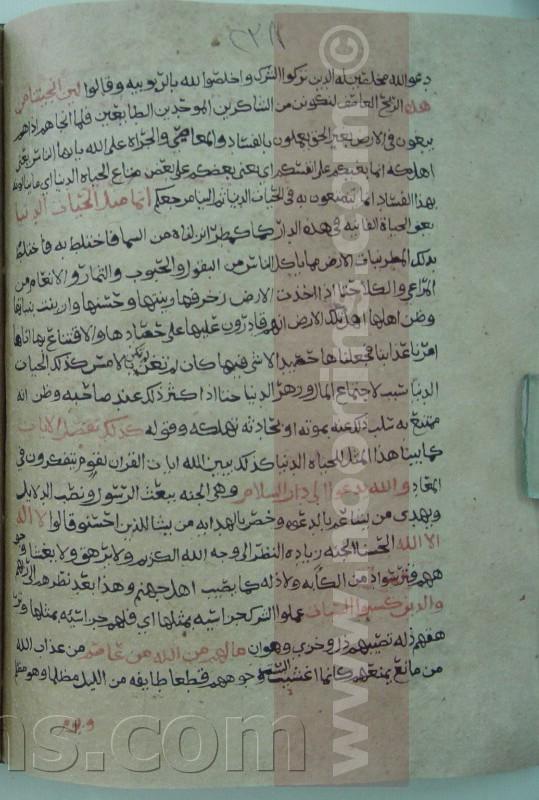 دعوا الله مخلصين له الدين تركوا الشرك واخلصوا لله بالربوبيه وقالوا لين انجيتنا من
هذه الريح العاصف لنكونن من الشاكرين الموحدين الطايعين فلما انجاهم اذا هم
يبغون في الارض بغير الحق يعملون بالفساد والمعاصي والجراه على الله يايها الناس يعني
اهل مكه انما بغيكم على انفسكم اي بغي بعضكم على بعض متاع الحياه الدنيا اي
بهذا الفساد انما تتمتعون به في الحيات الدنيا ثم الينا مرجعكم انما مثل الحيات الدنيا
يعني الحياة الفانيه في هذه الدار كما كمطر انزلناه من السما فاختلط به فاختلط
بذلك المطر نبات الارض مما ياكل الناس من البقول والحبوب والثمار والانعام من
المراعي والكلا حتى اذا اخذت الارض زخرفها زينتها وحسنها وازينت بنباتها
وظن اهلها اهل تلك الارض انهم قادرون عليها على حصادها والانتفاع بها اتاها
امرنا عذابنا فجعلناها حصيدا لا شي فيها كان لم تغن بالامس كذلك الحيات
الدنيا سبب لاجتماع المال وزهر الدنيا حتى اذا كثر ذلك عند صاحبه وظن انه
متمتع به سلب ذلك عنه بموته او بحادثه تهلكه وقوله كذلك نفصل الايات
كما بينا هذا المثل للحياه الدنيا كذلك يبين الله ايات القران لقوم يتفكرون في
المعاد والله يدعوا الى دار السلام وهي الجنه ببعث الرسول ونصب الدلايل
ويهدي من يشا عم بالدعوه وخص بالهدايه من يشا للذين احسنوا قالوا لا اله
الا الله الحسنى الجنه وزياده النظر الى وجه الله الكريم ولا يرهق ولا يغشا وجو
ههم قتر سواد من الكابه ولا ذله كما يصيب اهل جهنم وهذا بعد نظرهم الى ربهم
والذين كسبوا السيات عملوا الشرك جزا سيه بمثلها اي فلهم جزا سيه بمثلها وتر
هقهم ذله تصيبهم ذل وخزي وهوان ما لهم من الله من عاصم من عذاب الله
من مانع يمنعهم كانما اغشيت وجوههم قطعا طايفه من الليل مظلما وهو
© www.
ms.com